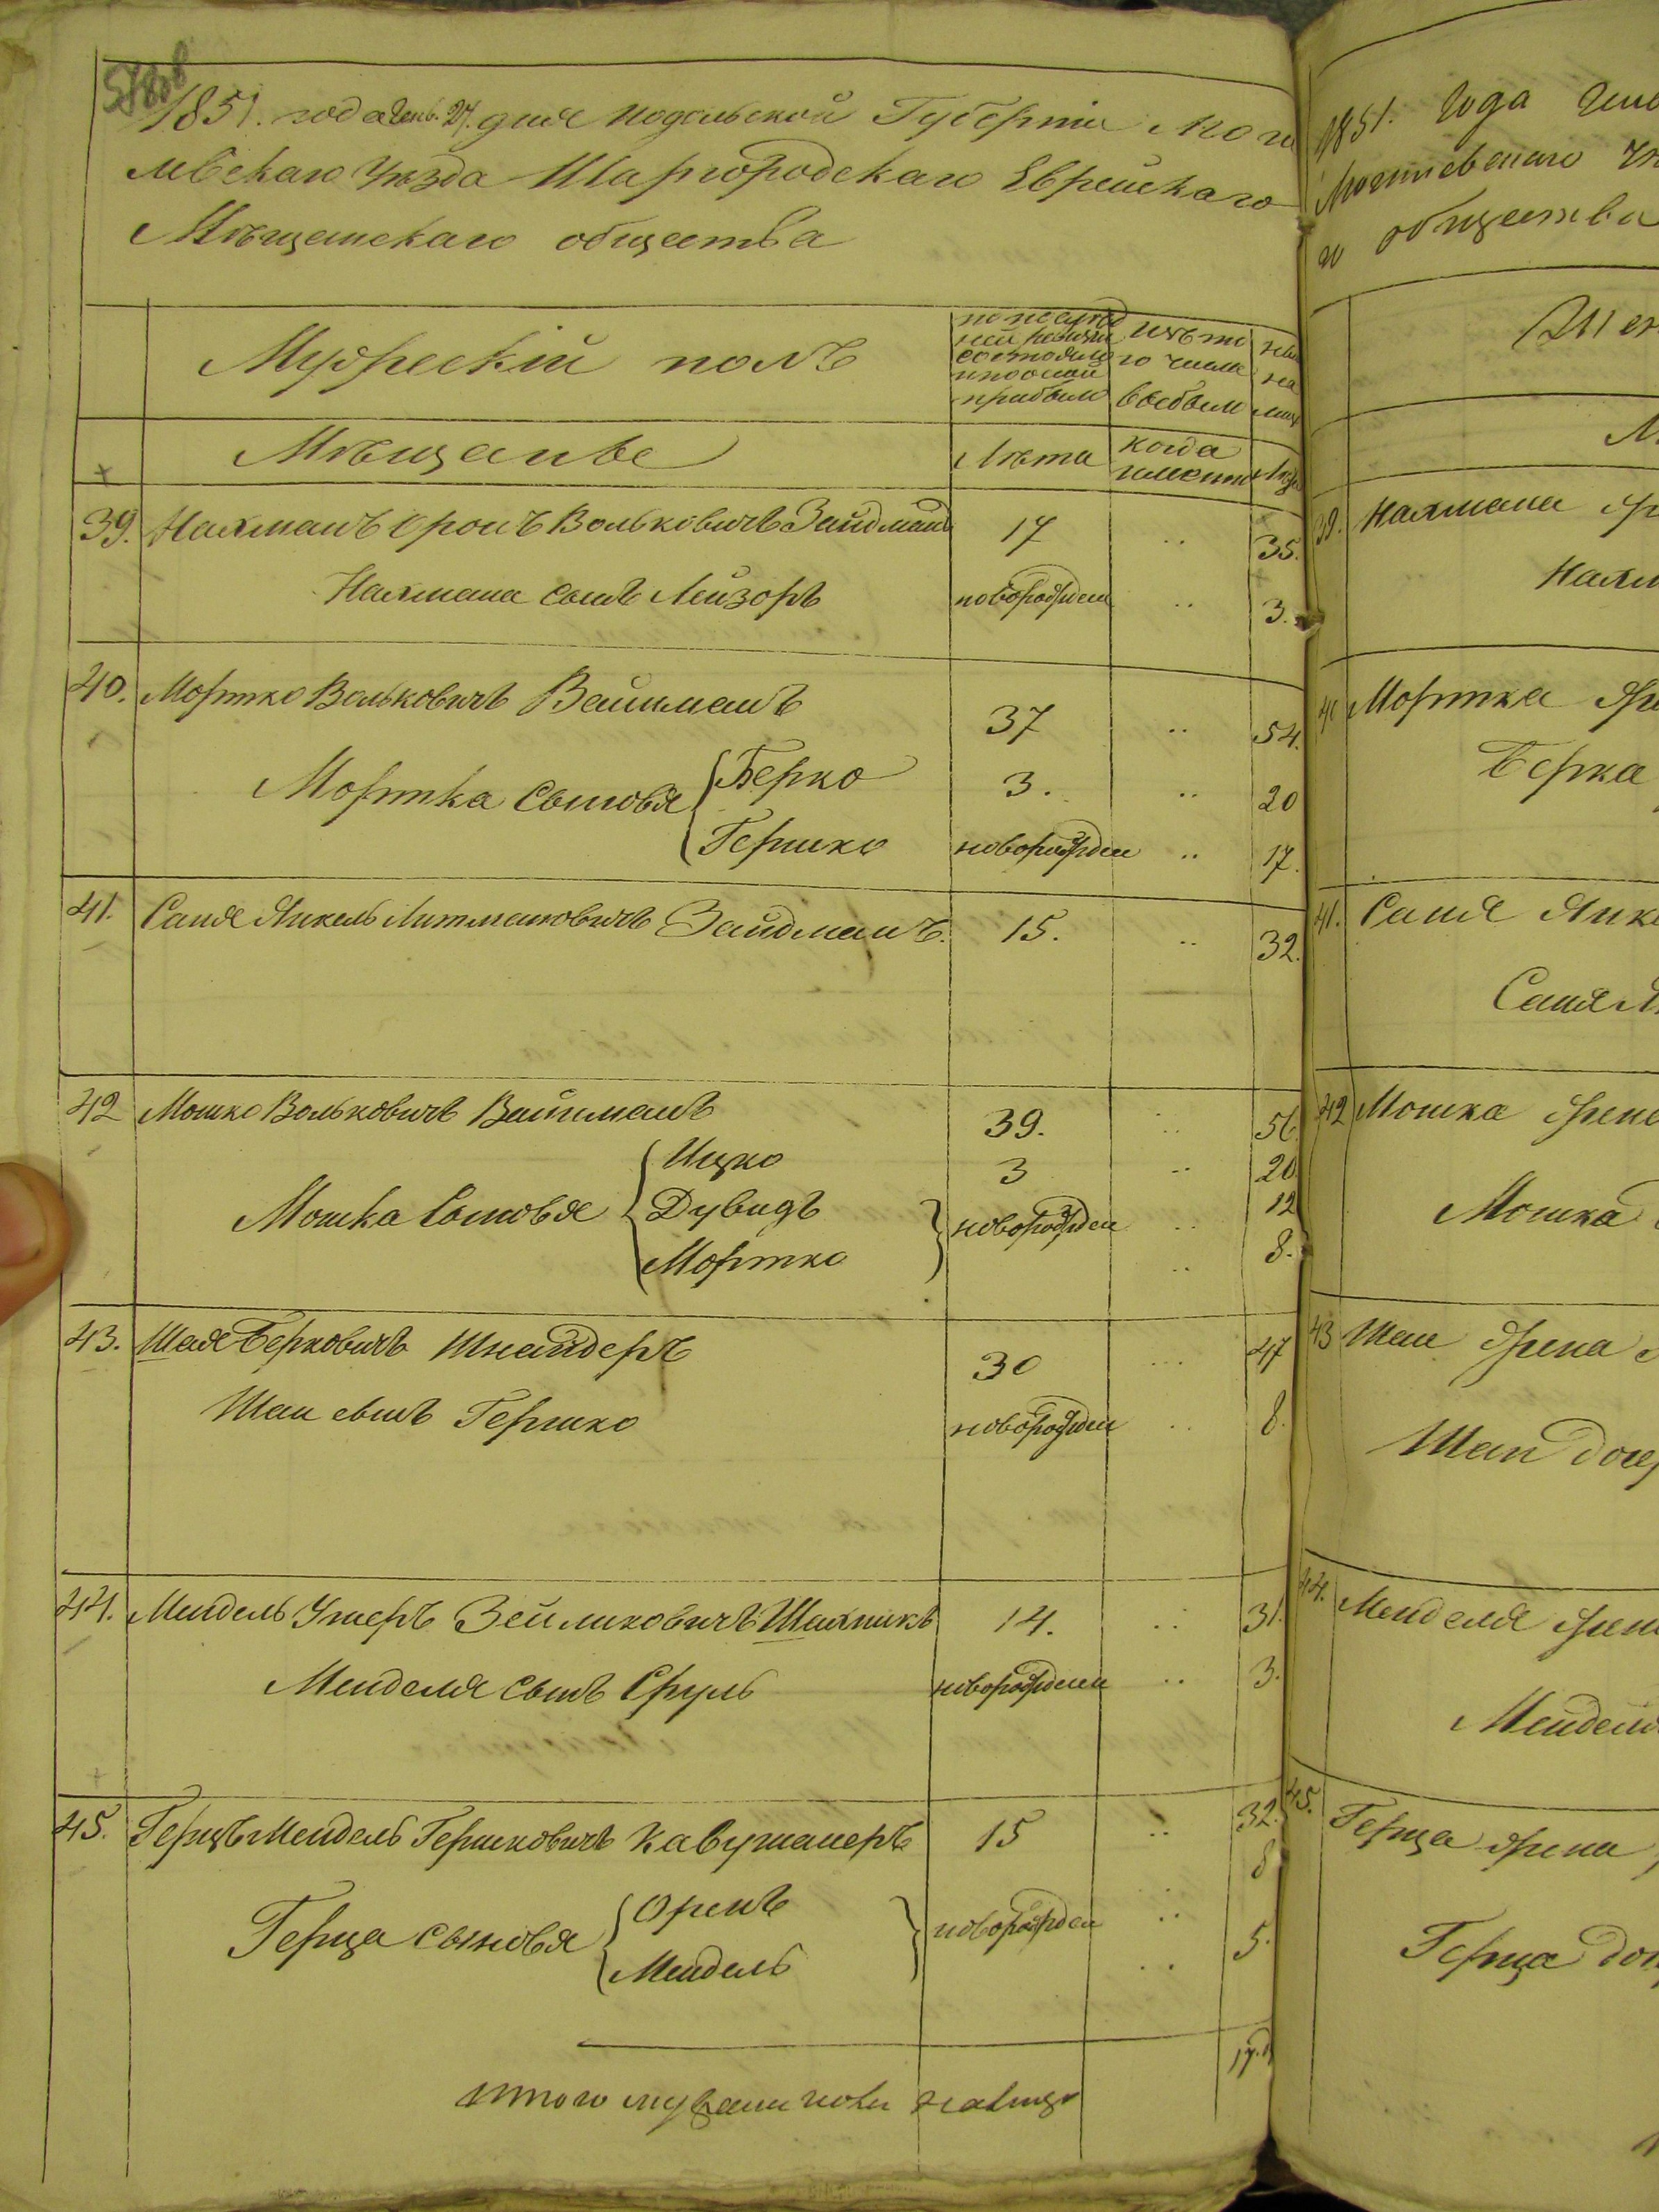 1851. года Генв. 27. дня Подольской Губерніи Моги
левскаго Уѣзда Шаргородскаго Еврейскаго
Мѣщанскаго общества
Мужескій полъ
по послѣд
ней ревизіи
состояло
и послѣ
прибыло
изъ то
го числа
выбыло
Мѣщане
Лѣта
когда
именно
Лѣта
39. Нахманъ Оронъ Вольковичъ Зайдманъ 17 .. 35.
Нахмана сынъ Лейзоръ новорожден .. 3.
40. Мортко Вольковичъ Вайнманъ 37 .. 54.
Мортка сыновья Берко 3. .. 20
Гершко новорожден .. 17.
41. Саня Янкель Литмановичъ Зайдманъ. 15. .. 32.
42 Мошко Вольковичъ Вайнманъ 39. .. 56.
Ицко 3 .. 20
Мошка сыновья Дувидъ новорожден .. 12
Мортко .. 8.
43. Шая Берковичъ Шнайдеръ 30 ... 47
Шаи сынъ Гершко новорожден .. 8.
44. Мендель Ушеръ Зейликовичъ Шахникъ 14. .. 31.
Менделя сынъ Сруль новорожден .. 3.
45. Герцъ Мендель Гершковичъ Кавушанеръ 15 .. 32.
Герца сыновья Оренъ новорожден .. 8
Мендель .. 5.
17.
итого мужеска пола на лицо
1851. Года Генв
Могилевскаго Уѣ
общества
39. Нахмана
Нахм
Мортка
Берка
41. Саня Янке
Саня Я
42 Мошка жена
Мошка
43 Шаи жена
Шаи доч
44. Менделя жена
Менделя
45. Герца жена
Герца доч